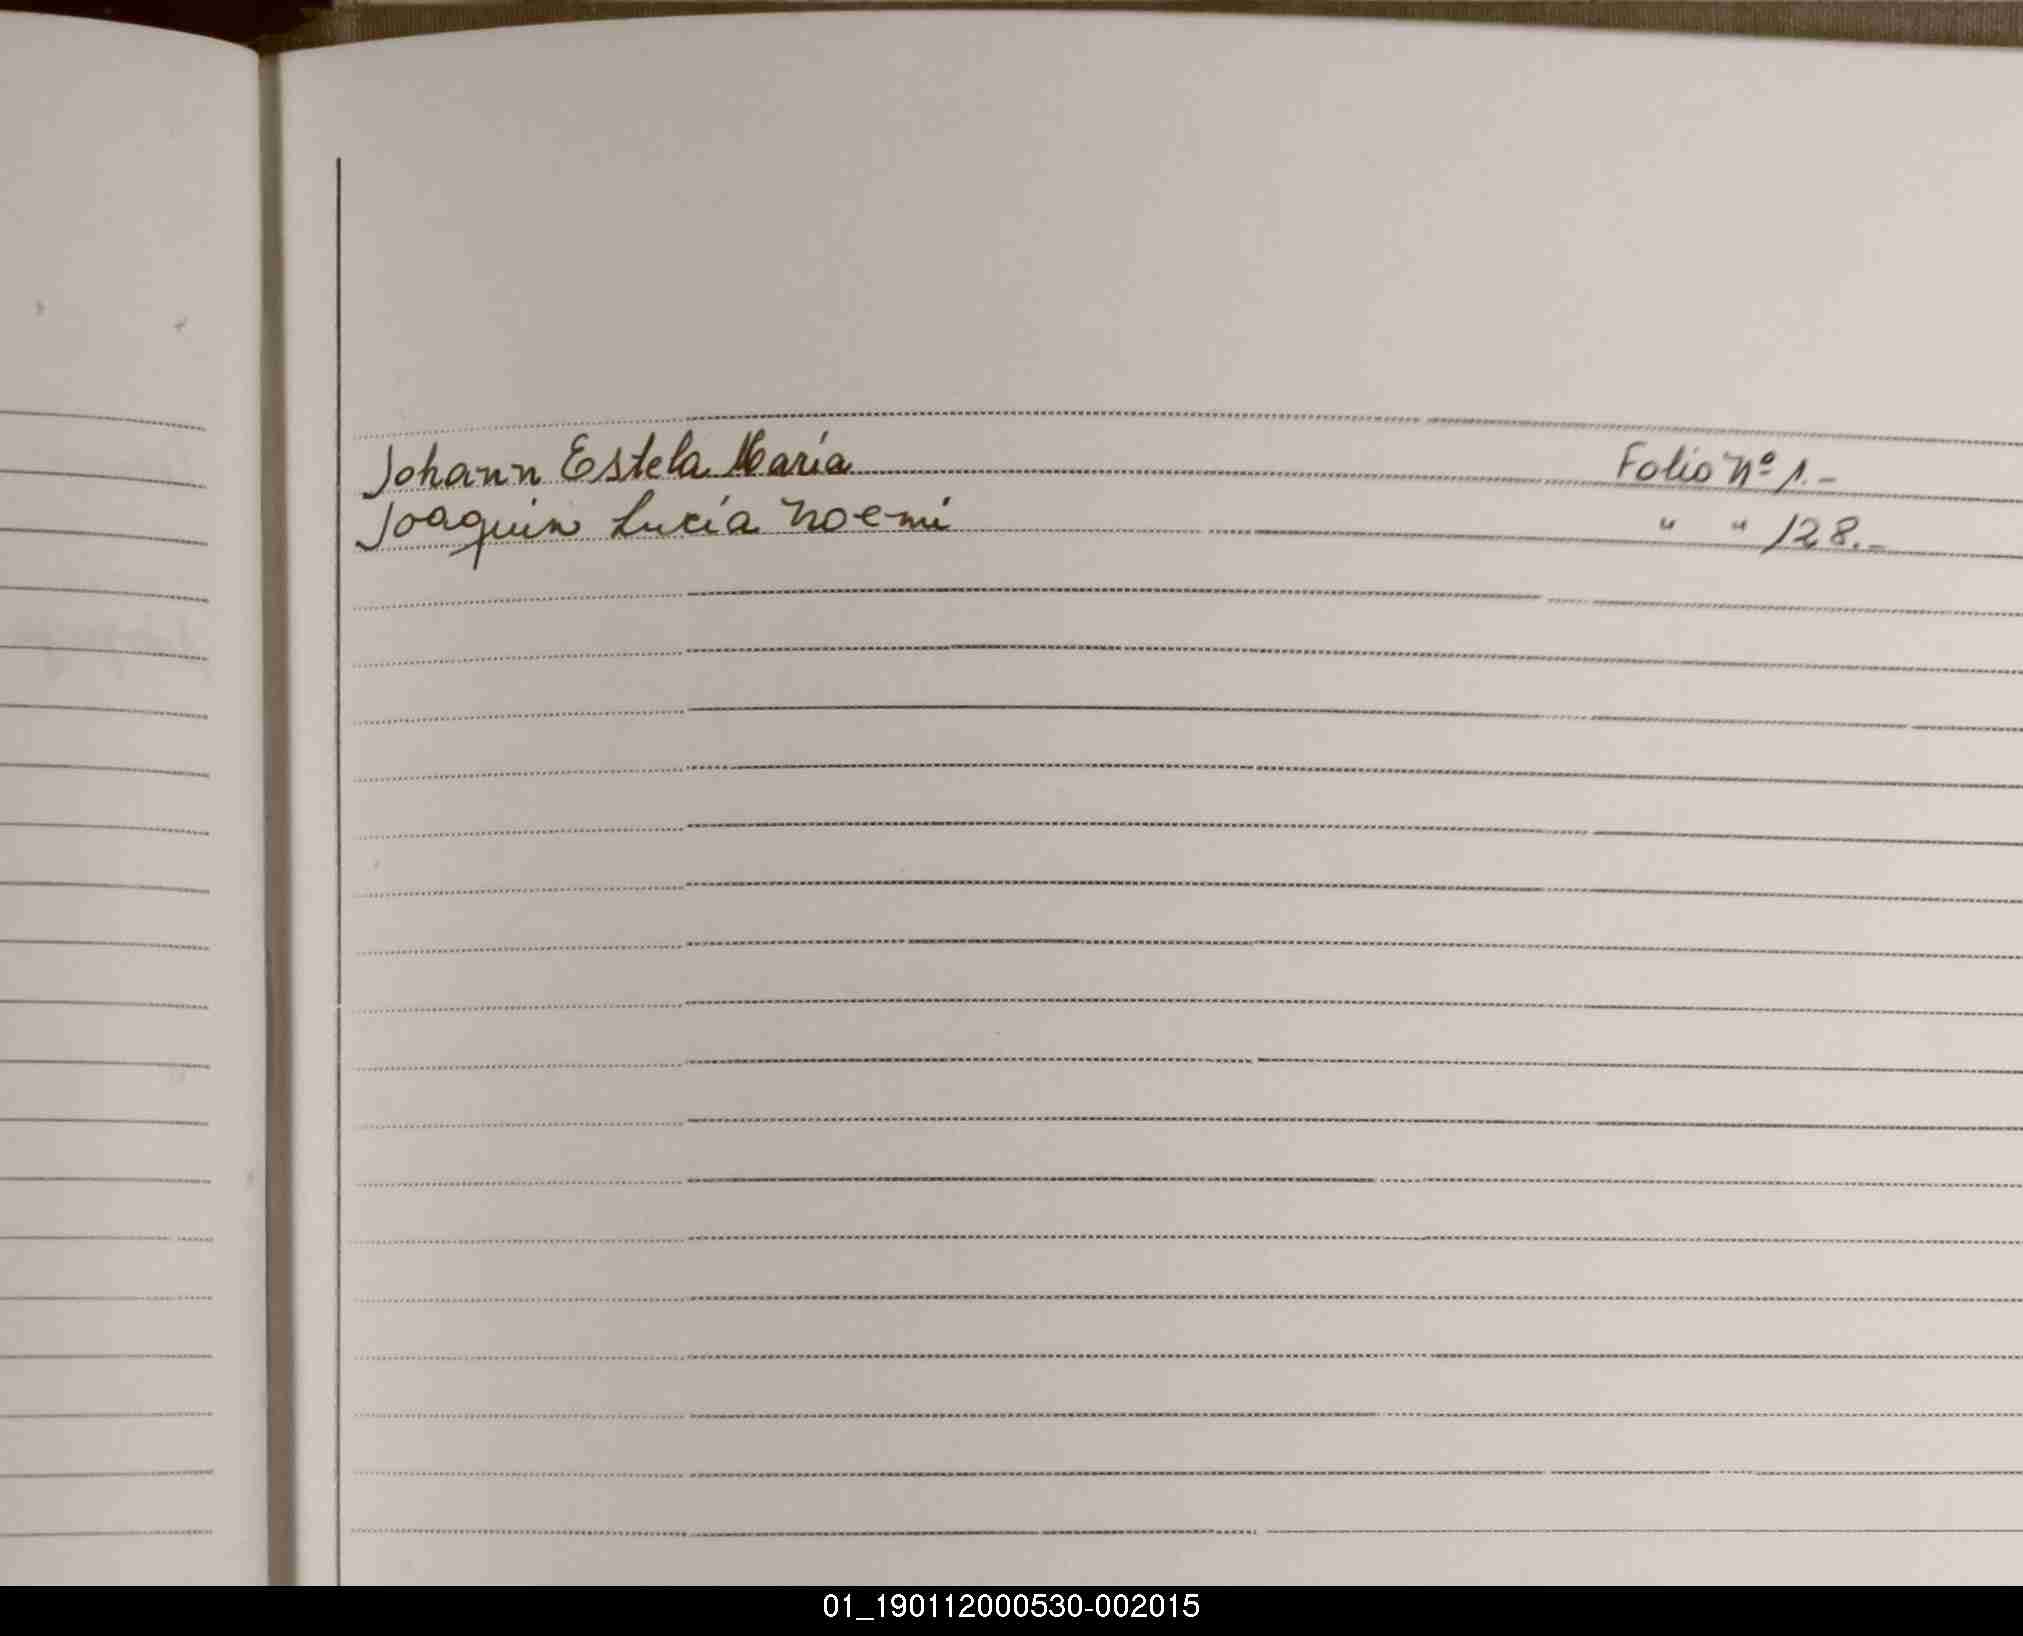 Johann Estela María Folio Nº 1.-
Joaquin Lucía Noemi " " 128.-
01_190112000530-002015